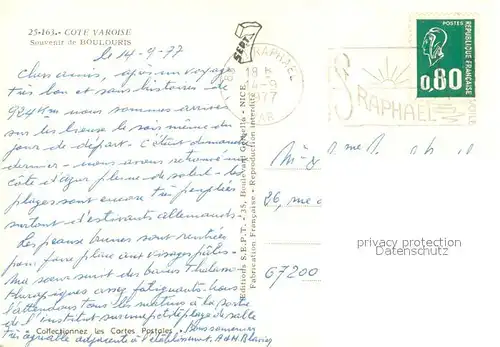 25-163.- COTE VAROISE
Souvenir de BOULOURIS
le 14-9-77
Chers amis, après un voyage
très bon et sans histoires - de
924 Km nous sommes arrivés
sur les lieux le soir même du
jour de départ. C'était dimanche
dernier - nous avons retrouvé une
côte d'azur pleine de soleil - les
plages sont encore très peuplées
surtout d'estivants allemands.
Les peaux brunes sont rentrées
pour faire place aux visages pâles.
Ma sœur suit des bains thalasso-
thérapiques assez fatiguants. Nous
l'attendons tous les matins à la sortie
de l'institut sur une petite plage de sable
très agréable adjacente à l'établissement.
Collectionnez les Cartes Postales
Bons souvenirs
A & H
Editions S.E.P.T. - 35, Boulevard - NICE
Fabrication Française - Reproduction interdite
SEPT
RAPHAEL
18 H
1977
VAR
St RAPHAEL
POSTES
REPUBLIQUE FRANÇAISE
0,80
86, rue
67200
privacy protection
Datenschutz